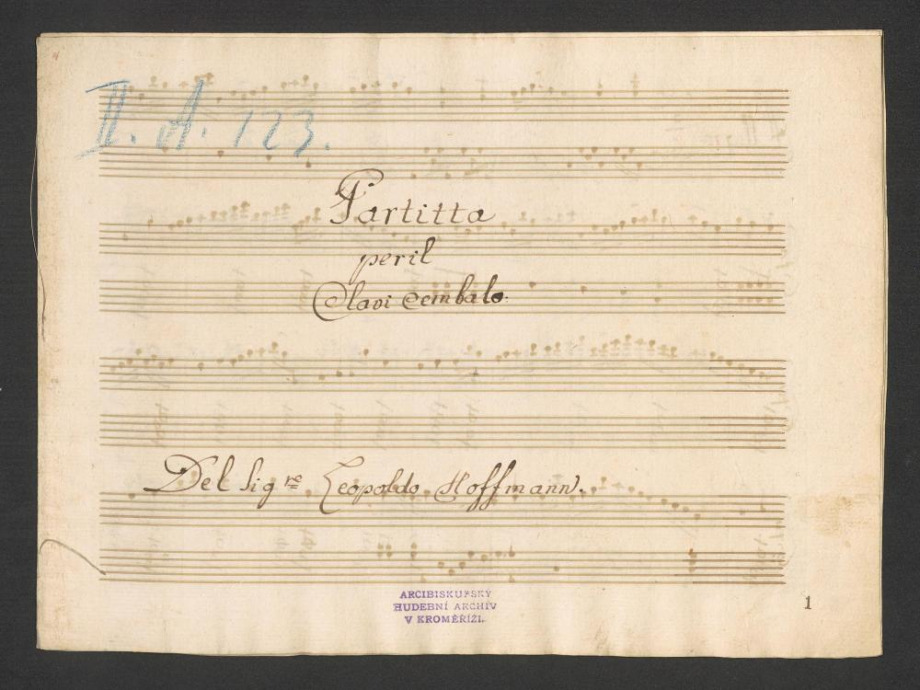 II. A. 123.
Partitta
per il
Clavi Cembalo.
Del Sig re Leopoldo Hoffmann.
ARCIBISKUPSKÝ
HUDEBNÍ ARCHIV
V KROMĚŘÍŽI.
1